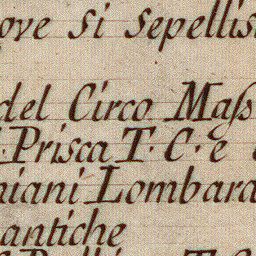 ove si sepellis
del Circo Mass
S. Prisca T. C. e
niani Lombard
antiche